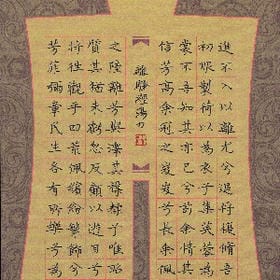 進不入以離尤兮退將復脩吾
初服製荷以為衣兮集芙蓉為
裳不吾知其亦已兮苟余情其
信芳高余冠之岌岌兮長余佩
離騷
之陸離芳與澤其雜糅兮唯昭
質其猶未虧忽反顧以遊目兮
將往觀乎四荒佩繽紛繁飾兮
芳菲彌章民生各有所樂兮